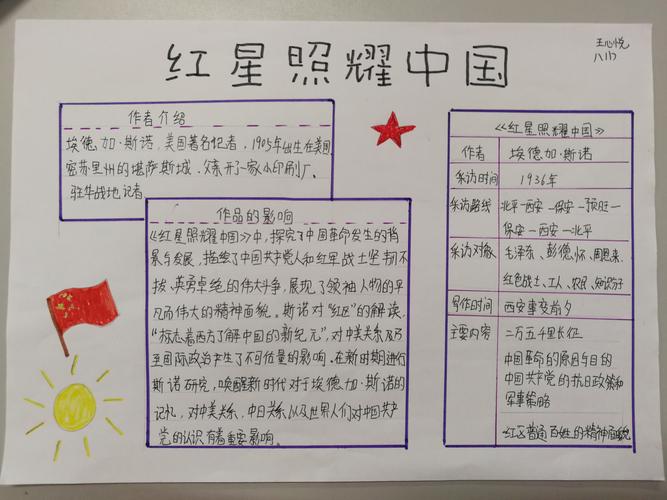 红星照耀中国
王心悦
作者介绍
埃德加·斯诺，美国著名记者，1905年出生在美国
密苏里州的堪萨斯城，父亲开了一家小印刷厂。
驻华战地记者
作品的影响
《红星照耀中国》中，探究了中国革命发生的背
景与发展，描绘了中国共产党人和红军战士坚韧不
拔、英勇卓绝的伟大斗争，展现了领袖人物的平
凡而伟大的精神面貌。斯诺对“红区”的解读，
“标志着西方了解中国的新纪元”，对中美关系乃
至国际政治产生了不可估量的影响。在新时期进行
斯诺研究，唤醒新时代对于埃德加·斯诺的
记忆，对中美关系，中日关系以及世界人们对中国共产
党的认识有着重要影响。
《红星照耀中国》
作者 埃德加·斯诺
采访时间 1936年
采访路线 北平—西安—保安—预旺—
保安—西安—北平
采访对象 毛泽东、彭德怀、周恩来、
红色战士、工人、农民、知识分子
写作时间 西安事变前夕
主要内容 二万五千里长征
中国革命的原因与目的
中国共产党的抗日政策和
军事策略
红区普通百姓的精神面貌